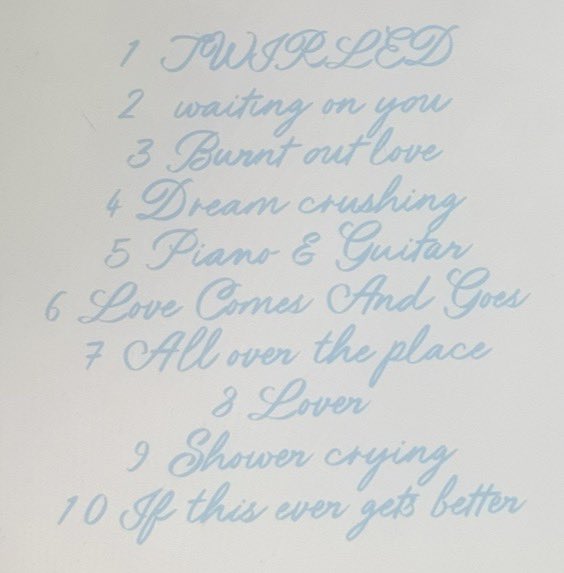 1 TWIRLED
2 waiting on you
3 Burnt out love
4 Dream crushing
5 Piano & Guitar
6 Love Comes And Goes
7 All over the place
8 Lover
9 Shower crying
10 If this ever gets better